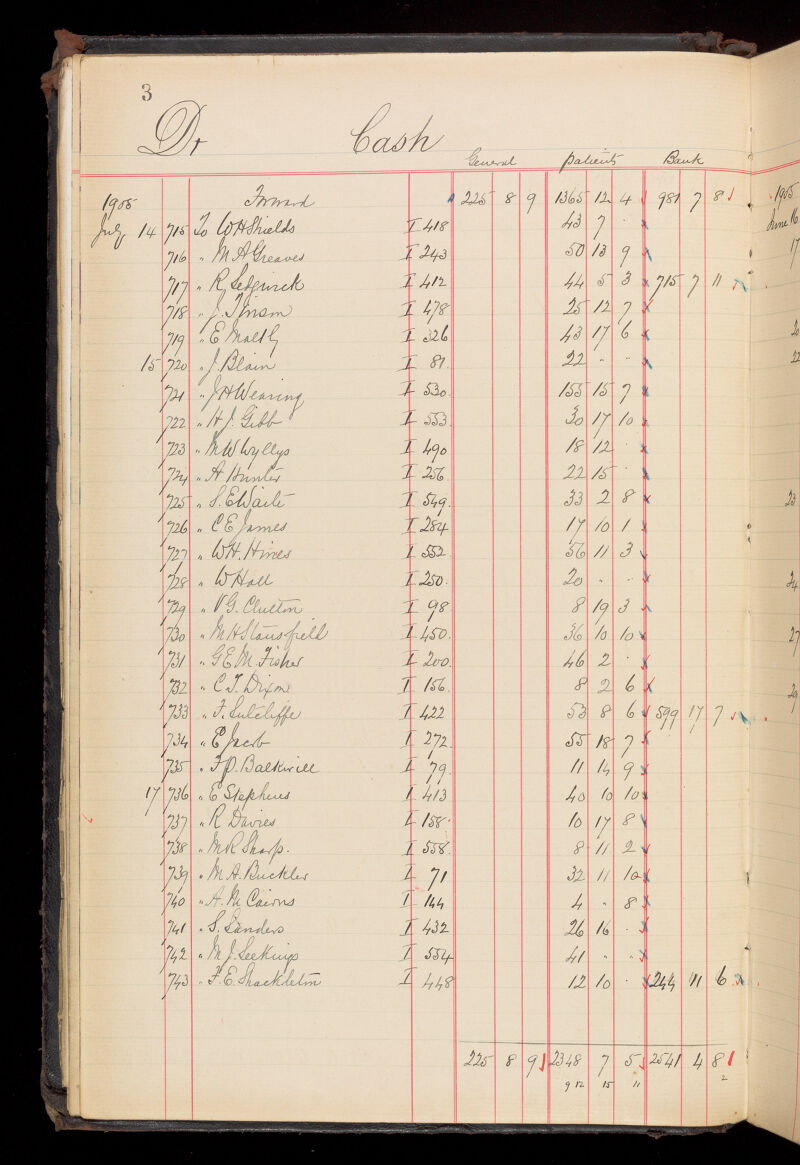 3
Dr Cash
General Patients Bank
1905 Forward 225 8 9 1365 12 4 981 7 8
July 14 715 To W H Shields I 418 43 7 .
716 " M A Greaves I 243 50 13 9
717 " R Sedgwick I 412 44 5 3 715 7 11
718 " J. Tinsm I 478 25 12 7
719 " E Maltby I 326 43 17 6
15 720 " J. Blain I 81 22 " "
721 " J H Wearing I 530 155 15 7
722 " H J. Gibb I 553 30 17 10
723 " M W Wyllys I 490 18 12 .
724 " A Hunter I 256 22 15 .
725 " S. E Waite I 549 33 2 8
726 " C E James I 284 17 10 1
727 " W H. Hines I 552 56 11 3
728 " W Hall I 250 20 " "
729 " V G. Clutton I 98 8 19 3
730 " M H Stansfield I 450 36 10 10
731 " G E M. Fisher I 200 46 2 .
732 " C T. Dixon I 156 8 2 6
733 " F. Sutcliffe I 422 53 8 6 599 17 7
734 " E Jacob I 272 55 18 7
735 " F P. Balkwill I 79 11 14 9
17 736 " E Stephens I 413 40 10 10
737 " R Davies I 158 10 17 8
738 " M R Sharp. I 558 8 11 2
739 " M A. Buckler I 71 32 11 10
740 " A. M Cairns I 144 4 " 8
741 " S. Sanders I 432 26 16 .
742 " M J. Seekings I 554 41 " "
743 " F. E. Shackleton I 448 12 10 . 244 11 6
225 8 9 2348 7 5 2541 4 8
9 12 15 11 2
1905
June 16
17
20
22
23
24
27
29